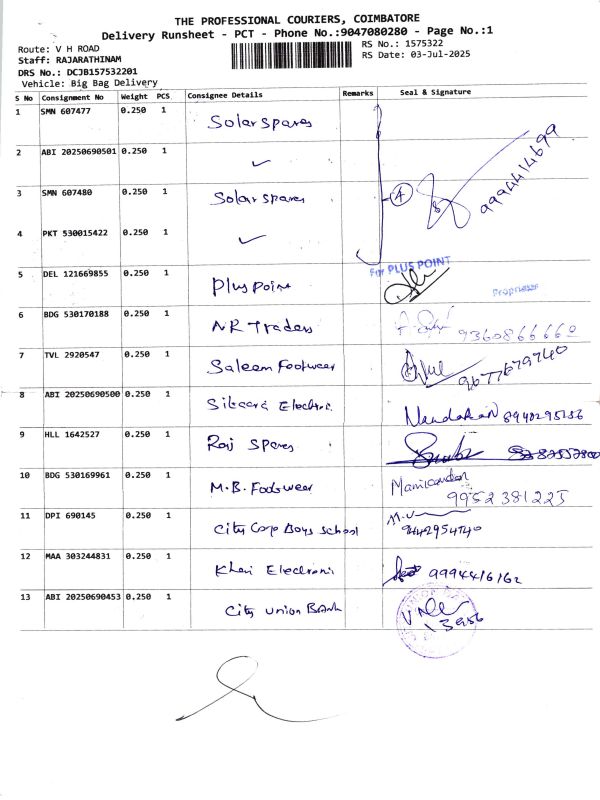 THE PROFESSIONAL COURIERS, COIMBATORE
Delivery Runsheet - PCT - Phone No.:9047080280 - Page No.:1
Route: V H ROAD
RS No.: 1575322
Staff: RAJARATHINAM
RS Date: 03-Jul-2025
DRS No.: DCJB157532201
Vehicle: Big Bag Delivery
S No Consignment No Weight PCS Consignee Details Remarks Seal & Signature
1 SMN 607477 0.250 1 Solar Spares
2 ABI 20250690501 0.250 1 ✓
3 SMN 607480 0.250 1 Solar Spares A 9994414699
4 PKT 530015422 0.250 1 ✓
For PLUS POINT
5 DEL 121669855 0.250 1 Plus Point Proprietor
6 BDG 530170188 0.250 1 NR Traders 9360866660
7 TVL 2920547 0.250 1 Saleem Footwear 9677679740
8 ABI 20250690500 0.250 1 Electric
9 HLL 1642527 0.250 1 Raj Spares
10 BDG 530169961 0.250 1 M.B. Footwear Manikandan
9952381225
11 DPI 690145 0.250 1 City Corp Boys School 9442954740
12 MAA 303244831 0.250 1 9994416162
13 ABI 20250690453 0.250 1 City Union Bank
13956